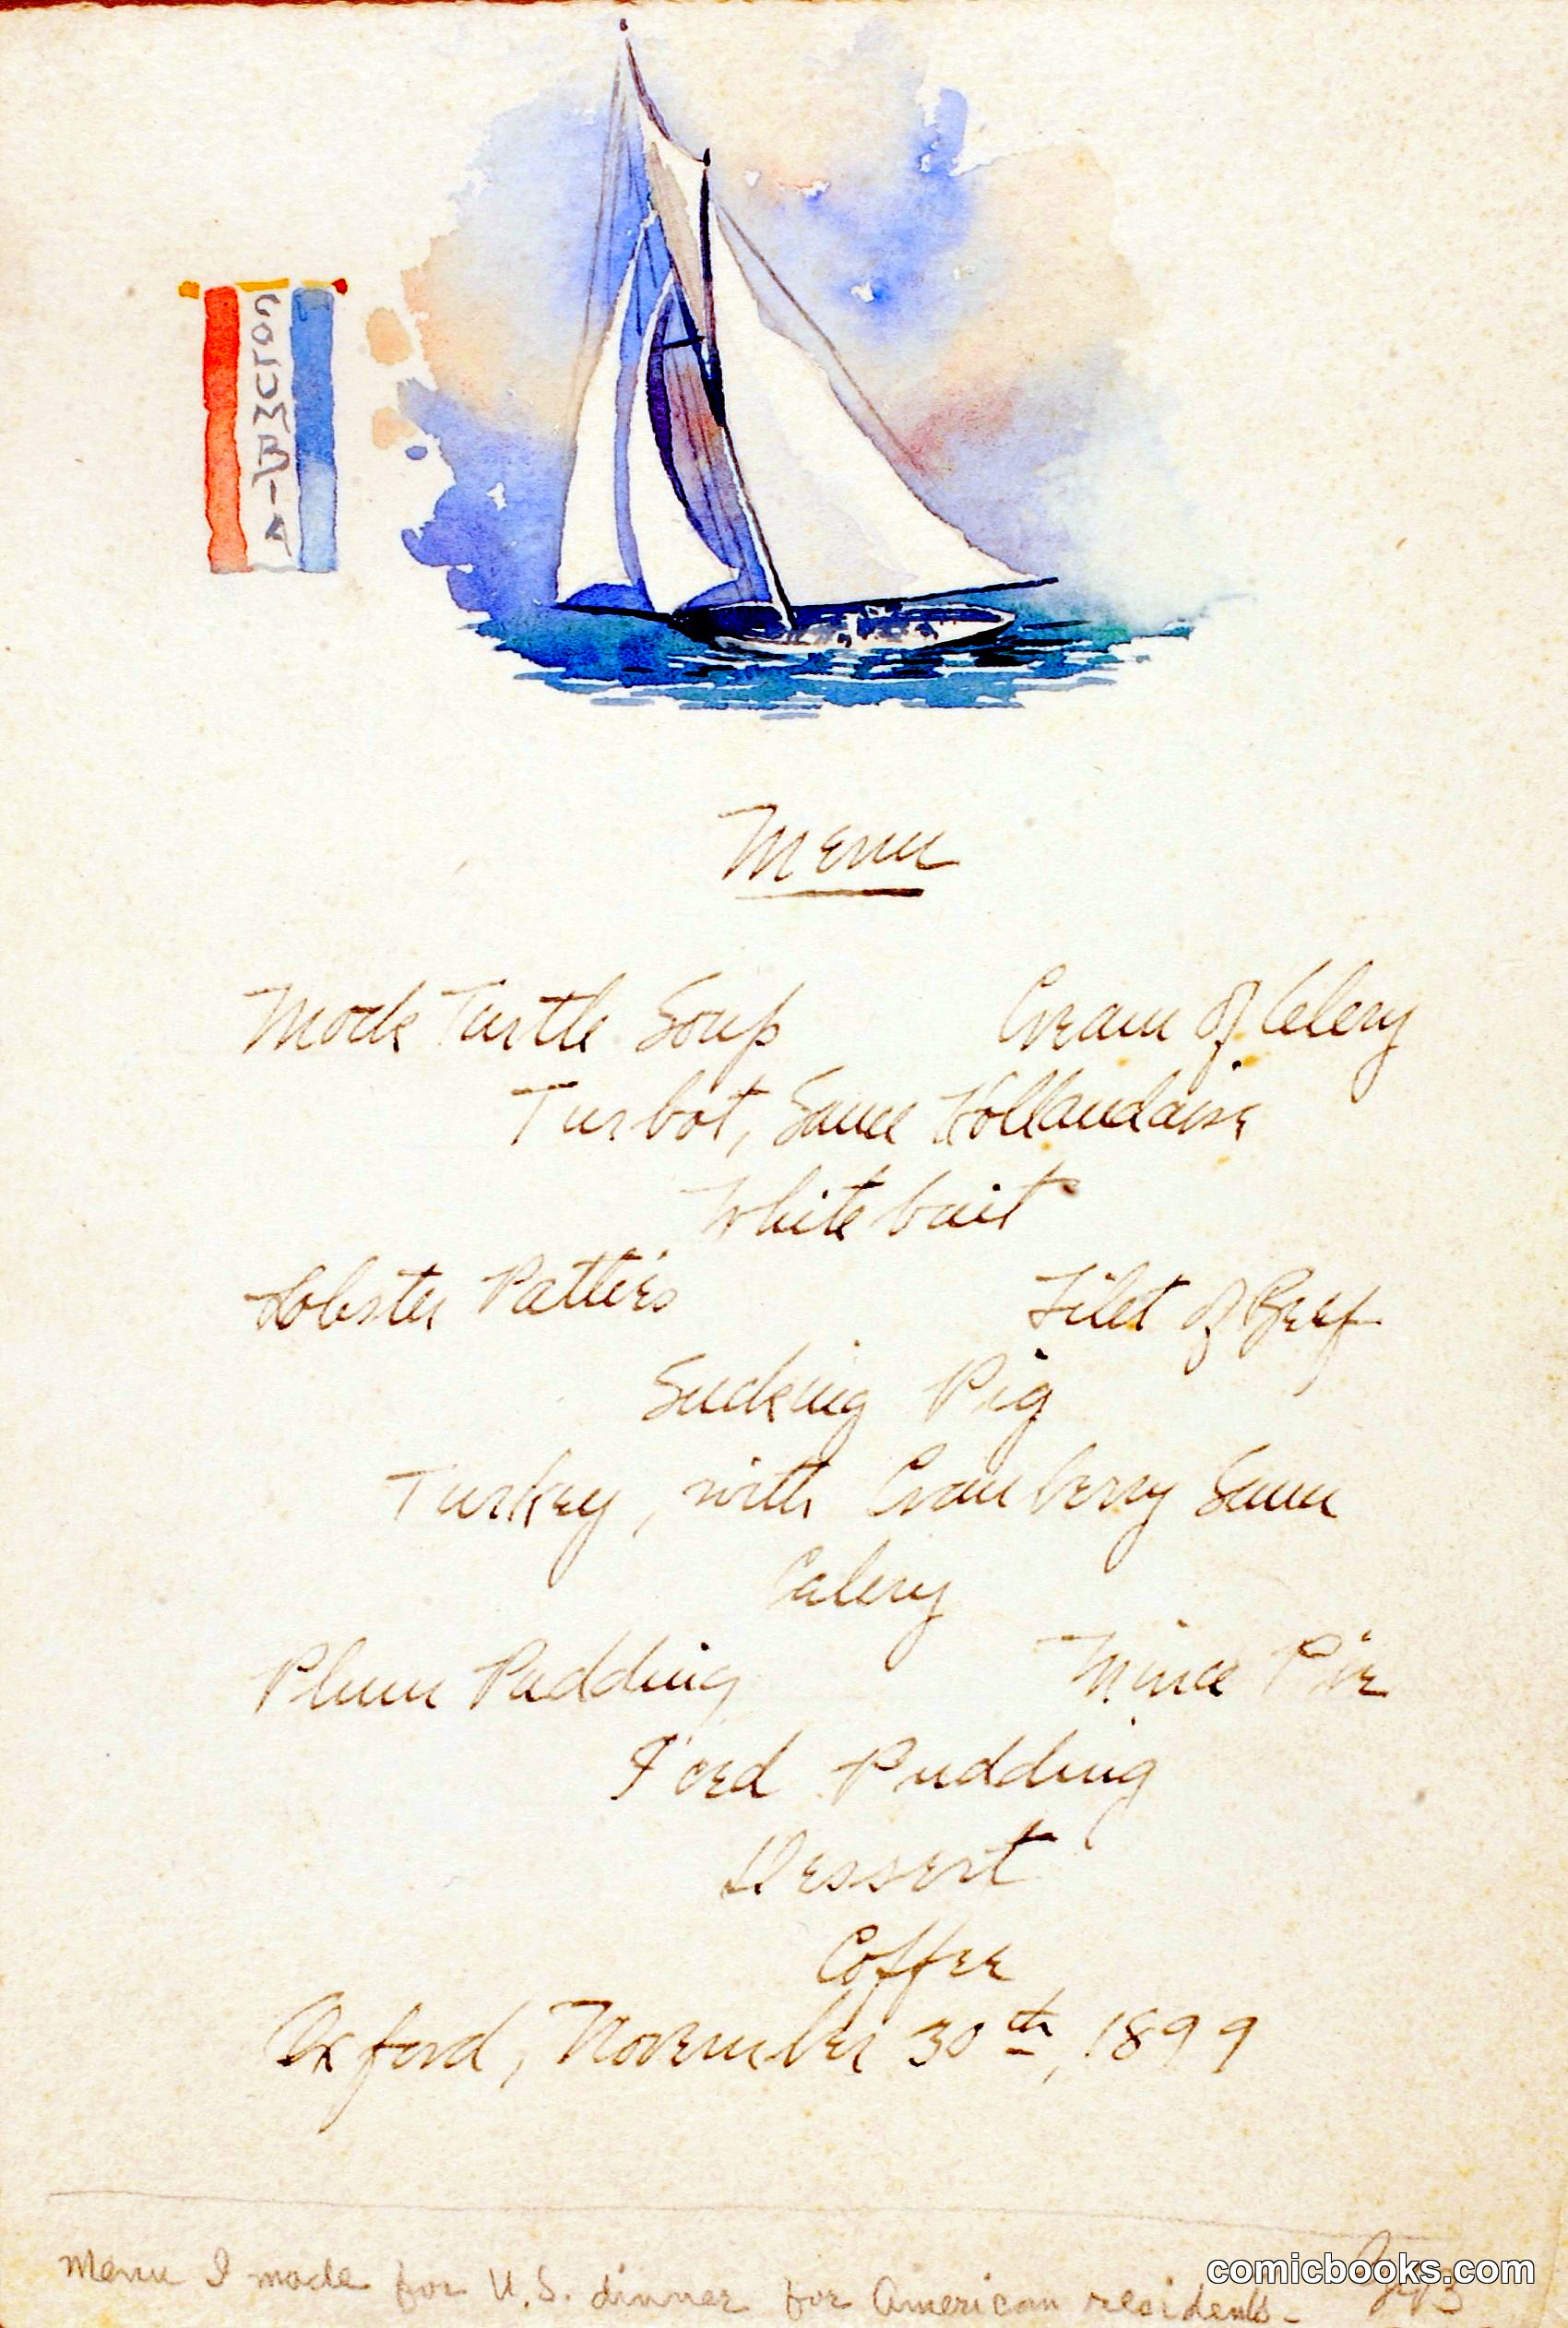 COLUMBIA
Menu
Mock Turtle Soup Cream of Celery
Turbot, Sauce Hollandaise
Whitebait
Lobster Patties Filet of Beef
Sucking Pig
Turkey, with Cranberry Sauce
Celery
Plum Pudding Mince Pie
Iced Pudding
Dessert
Coffee
Oxford, November 30th, 1899
Menu I made for U.S. dinner for American residents-
comicbooks.com